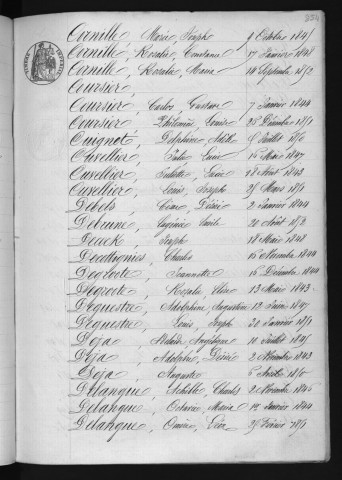 254
Cornille, Marie Joseph 9 Octobre 1845
Cornille, Rosalie, Constance 17 Janvier 1848
Cornille, Rosalie, Maria 14 Septembre 1852
Coursier,
Coursier, Carlos, Gustave 7 Janvier 1844
Coursier, Philomène, Louise 28 Décembre 1851
Cuignet, Delphine, Adèle 8 Juillet 1850
Cuvellier, 15 Mars 1847
Cuvellier, Juliette, 18 Août 1843
Cuvellier, Louis, Joseph 25 Mars 1851
Debels, César, Désiré 2 Janvier 1844
Debrune, Eugénie, Emile 20 Août 1852
Joseph 18 Mai 1848
Charles 15 Novembre 1844
Degroote, Jeannette 15 Décembre 1844
Degroote, Rosalie, 13 Mars 1843
Dequestre, Adolphine, Augustine 12 Juin 1847
Dequestre, Louis, Joseph 30 Janvier 1851
Deja, Angélique 10 Juillet 1845
Deja, Adolphe, Désiré 2 Novembre 1843
Deja, Auguste 1850
Delangue, Achille, Charles 2 Novembre 1846
Delangue, Octavie, Maria 19 Janvier 1844
Delangue, 25 Février 1851